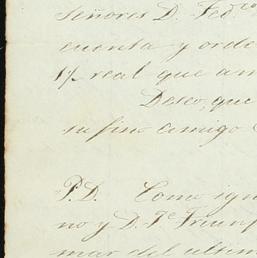 Señores D. Fed.co
cuenta y orde
17 real que am
Deseo, que
su fino amigo
P.D. Como ign
no y D. Fe Triunf
mar del ultim